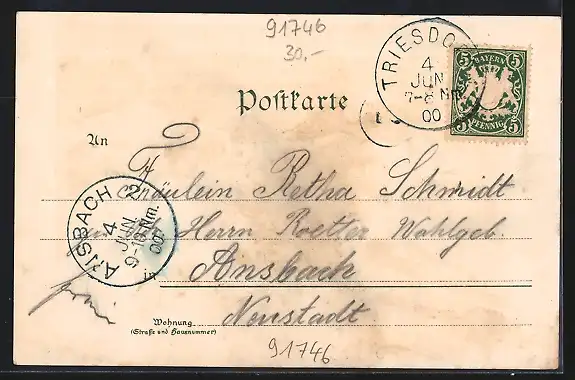 91746
30.-
TRIESDORF
4
JUN
7-8 Nm.
00
5 BAYERN 5
5 PFENNIG 5
Postkarte
An
Fräulein Retha Schmidt
Herrn Roetter Wahlgeb.
in Ansbach
Neustadt
ANSBACH 2
4
JUN
9-10 Nm.
00
Wohnung
(Straße und Hausnummer)
91746